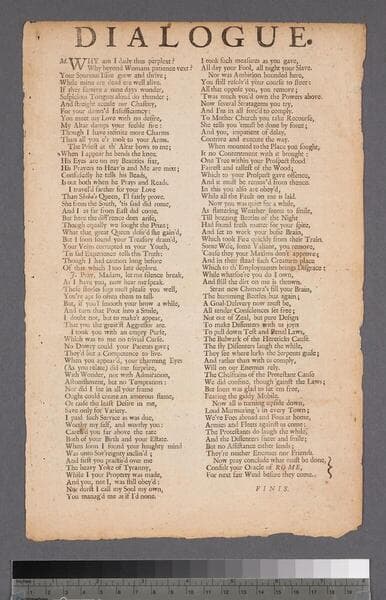 DIALOGUE.
M. WHY am I daily thus perplext?
Why beyond Womans patience vext?
Your Spurious Issue grow and thrive;
While mine are dead ere well alive.
If after sixteen a nine days wonder,
Suspicious Tongues aloud do thunder;
And streight accuse our Chastity,
For your damn'd Insufficiency:
You meet my Love with no desire,
My Altar damps your feeble fire:
Though I have infinite more Charms
Than all you e'r took to your Arms.
The Priest at th' Altar bows to me;
When I appear he bends the knee.
His Eyes are on my Beauties fixt,
His Prayers to Heav'n and Me are mixt;
Confusedly he tells his Beads,
Is out both when he Prays and Reads.
I travel'd farther for your Love
Than Sheba's Queen, I'l fairly prove.
She from the South, 'tis said did come,
And I as far from East did come.
But here the difference does arise,
Though equally we sought the Prize;
What that great Queen desir'd she gain'd,
But I soon found your Treasury drain'd,
Your Veins corrupted in your Youth,
Too sad Experience tells this Truth:
Though I had caution long before
Of that which I too late deplore.
J. Pray, Madam, let me silence break,
As I have, now hear me speak.
These stories you must please you well,
You're apt so often them to tell.
But, if you'l smooth your brow a while,
And turn that Pout into a Smile,
I doubt not, but to make't appear,
That you the great'st Aggressor are.
I took you with an empty Purse,
Which was to me no trivial Curse.
No Dowry could your Parents gave;
They'd but a Competence to live.
When you appear'd, your charming Eyes
(As you relate) did me surprise,
With Wonder, not with Admiration,
Astonishment, but no Temptation:
Nor did I see in all your frame
Ought could create an amorous flame,
Or cause the least Desire in me,
Save only for Variety.
I paid such Service as was due,
Worthy my self, and worthy you:
Caress'd you far above the rate
Both of your Birth and your Estate.
When soon I found your haughty mind
Was unto Sov'reignty inclin'd;
And first you practis'd over me
The heavy Yoke of Tyranny,
While I your Property was made,
And you, not I, was still obey'd;
Nor durst I call my Soul my own,
You manag'd me as if I'd none.
I took such measures as you gave,
All day your Fool, all night your Slave.
Nor was Ambition bounded here,
You still resolv'd your course to steer:
All that oppose you, you remove;
Twas much you'd own the Powers above.
Now several Stratagems you try,
And I'm in all forc'd to comply.
To Mother Church you take Recourse,
She tells you 'tmust be done by force;
And you, impatient of delay,
Contrive and execute the way.
When mounted to the Place you sought,
It no Contentment with it brought:
One Tree within your Prospect stood
Fairest and tallest of the Wood;
Which to your Prospect gave offence,
And it must be remov'd from thence.
In this you also are obey'd,
While all the Fault on me is laid.
Now you was quiet for a while,
As flattering Weather seems to smile,
Till buzzing Beetles of the Night
Had found fresh matter for your spite,
And set to work your busie Brain,
Which took Fire quickly from their Train.
Some Wise, some Valiant, you remove,
'Cause they your Maxims don't approve;
And in their stead such Creatures place
Which to th' Employments brings Disgrace:
While whatsoe'er you do I own,
And still the dirt on me is thrown.
Strait new Chimera's fill your Brain,
The humming Beetles hum again;
A Goal-Delivery now must be,
All tender Consciences set free;
Not out of Zeal, but pure Design
To make Dissenters with us joyn
To pull down Test and Penal Laws,
The Bulwark of the Hereticks Cause.
The sly Dissenters laugh the while,
They see where lurks the Serpents guile;
And rather than with us comply,
Will on our Enemies rely.
The Chieftains of the Protestant Cause
We did confine, though 'gainst the Laws;
But soon was glad to set em free,
Fearing the giddy Mobile.
Now all is turning upside down,
Loud Murmuring's in every Town;
We've Foes abroad and Foes at home,
Armies and Fleets against us come;
The Protestants do laugh the while,
And the Dissenters sneer and smile;
But no Assistance either lends;
They're neither Enemies nor Friends.
Now pray conclude what must be done,
Consult your Oracle of ROME,
For next fair Wind before they come.
FINIS.